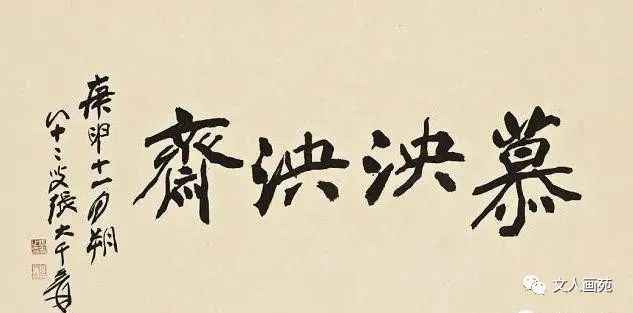 慕泱泱齋
庚申十一月朔
八十二叟張大千爰
文人画苑